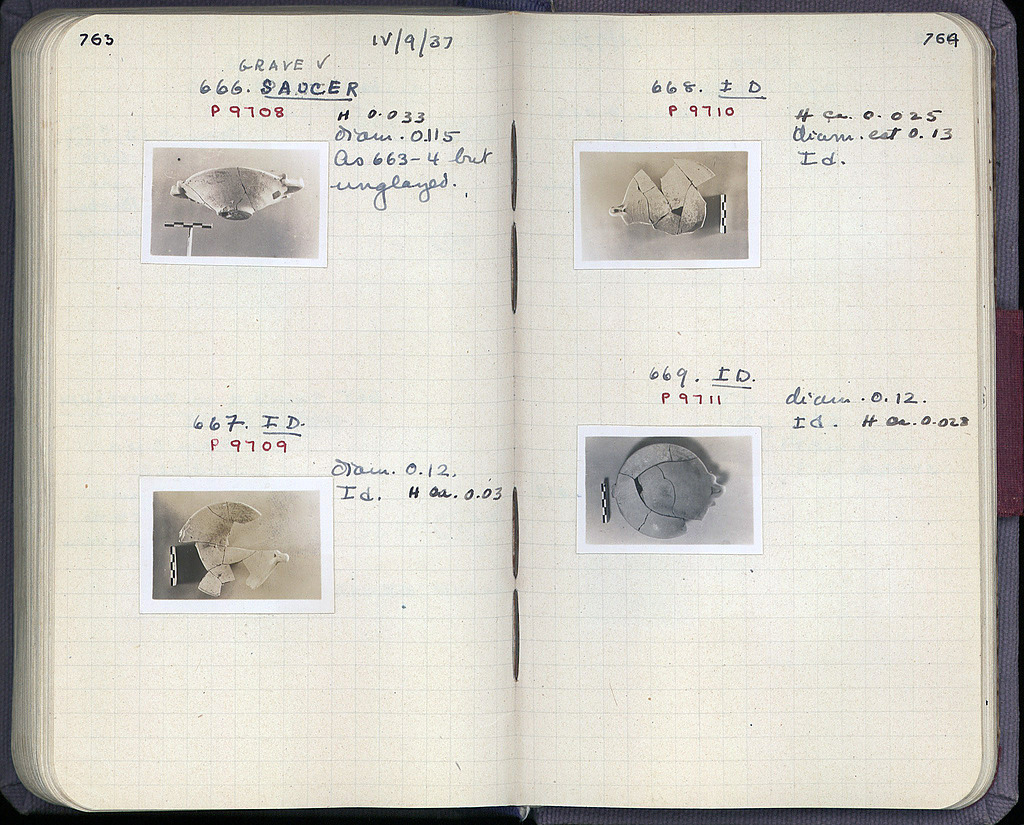 763
IV/9/37
GRAVE V
666. SAUCER
P 9708
H 0.033
diam. 0.115
As 663-4 but
unglazed.
667. ID.
P 9709
diam. 0.12.
Id. H ca. 0.03
764
668. ID
P 9710
H ca. 0.025
diam. est 0.13
Id.
669. ID.
P 9711
diam. 0.12.
Id. H ca. 0.028